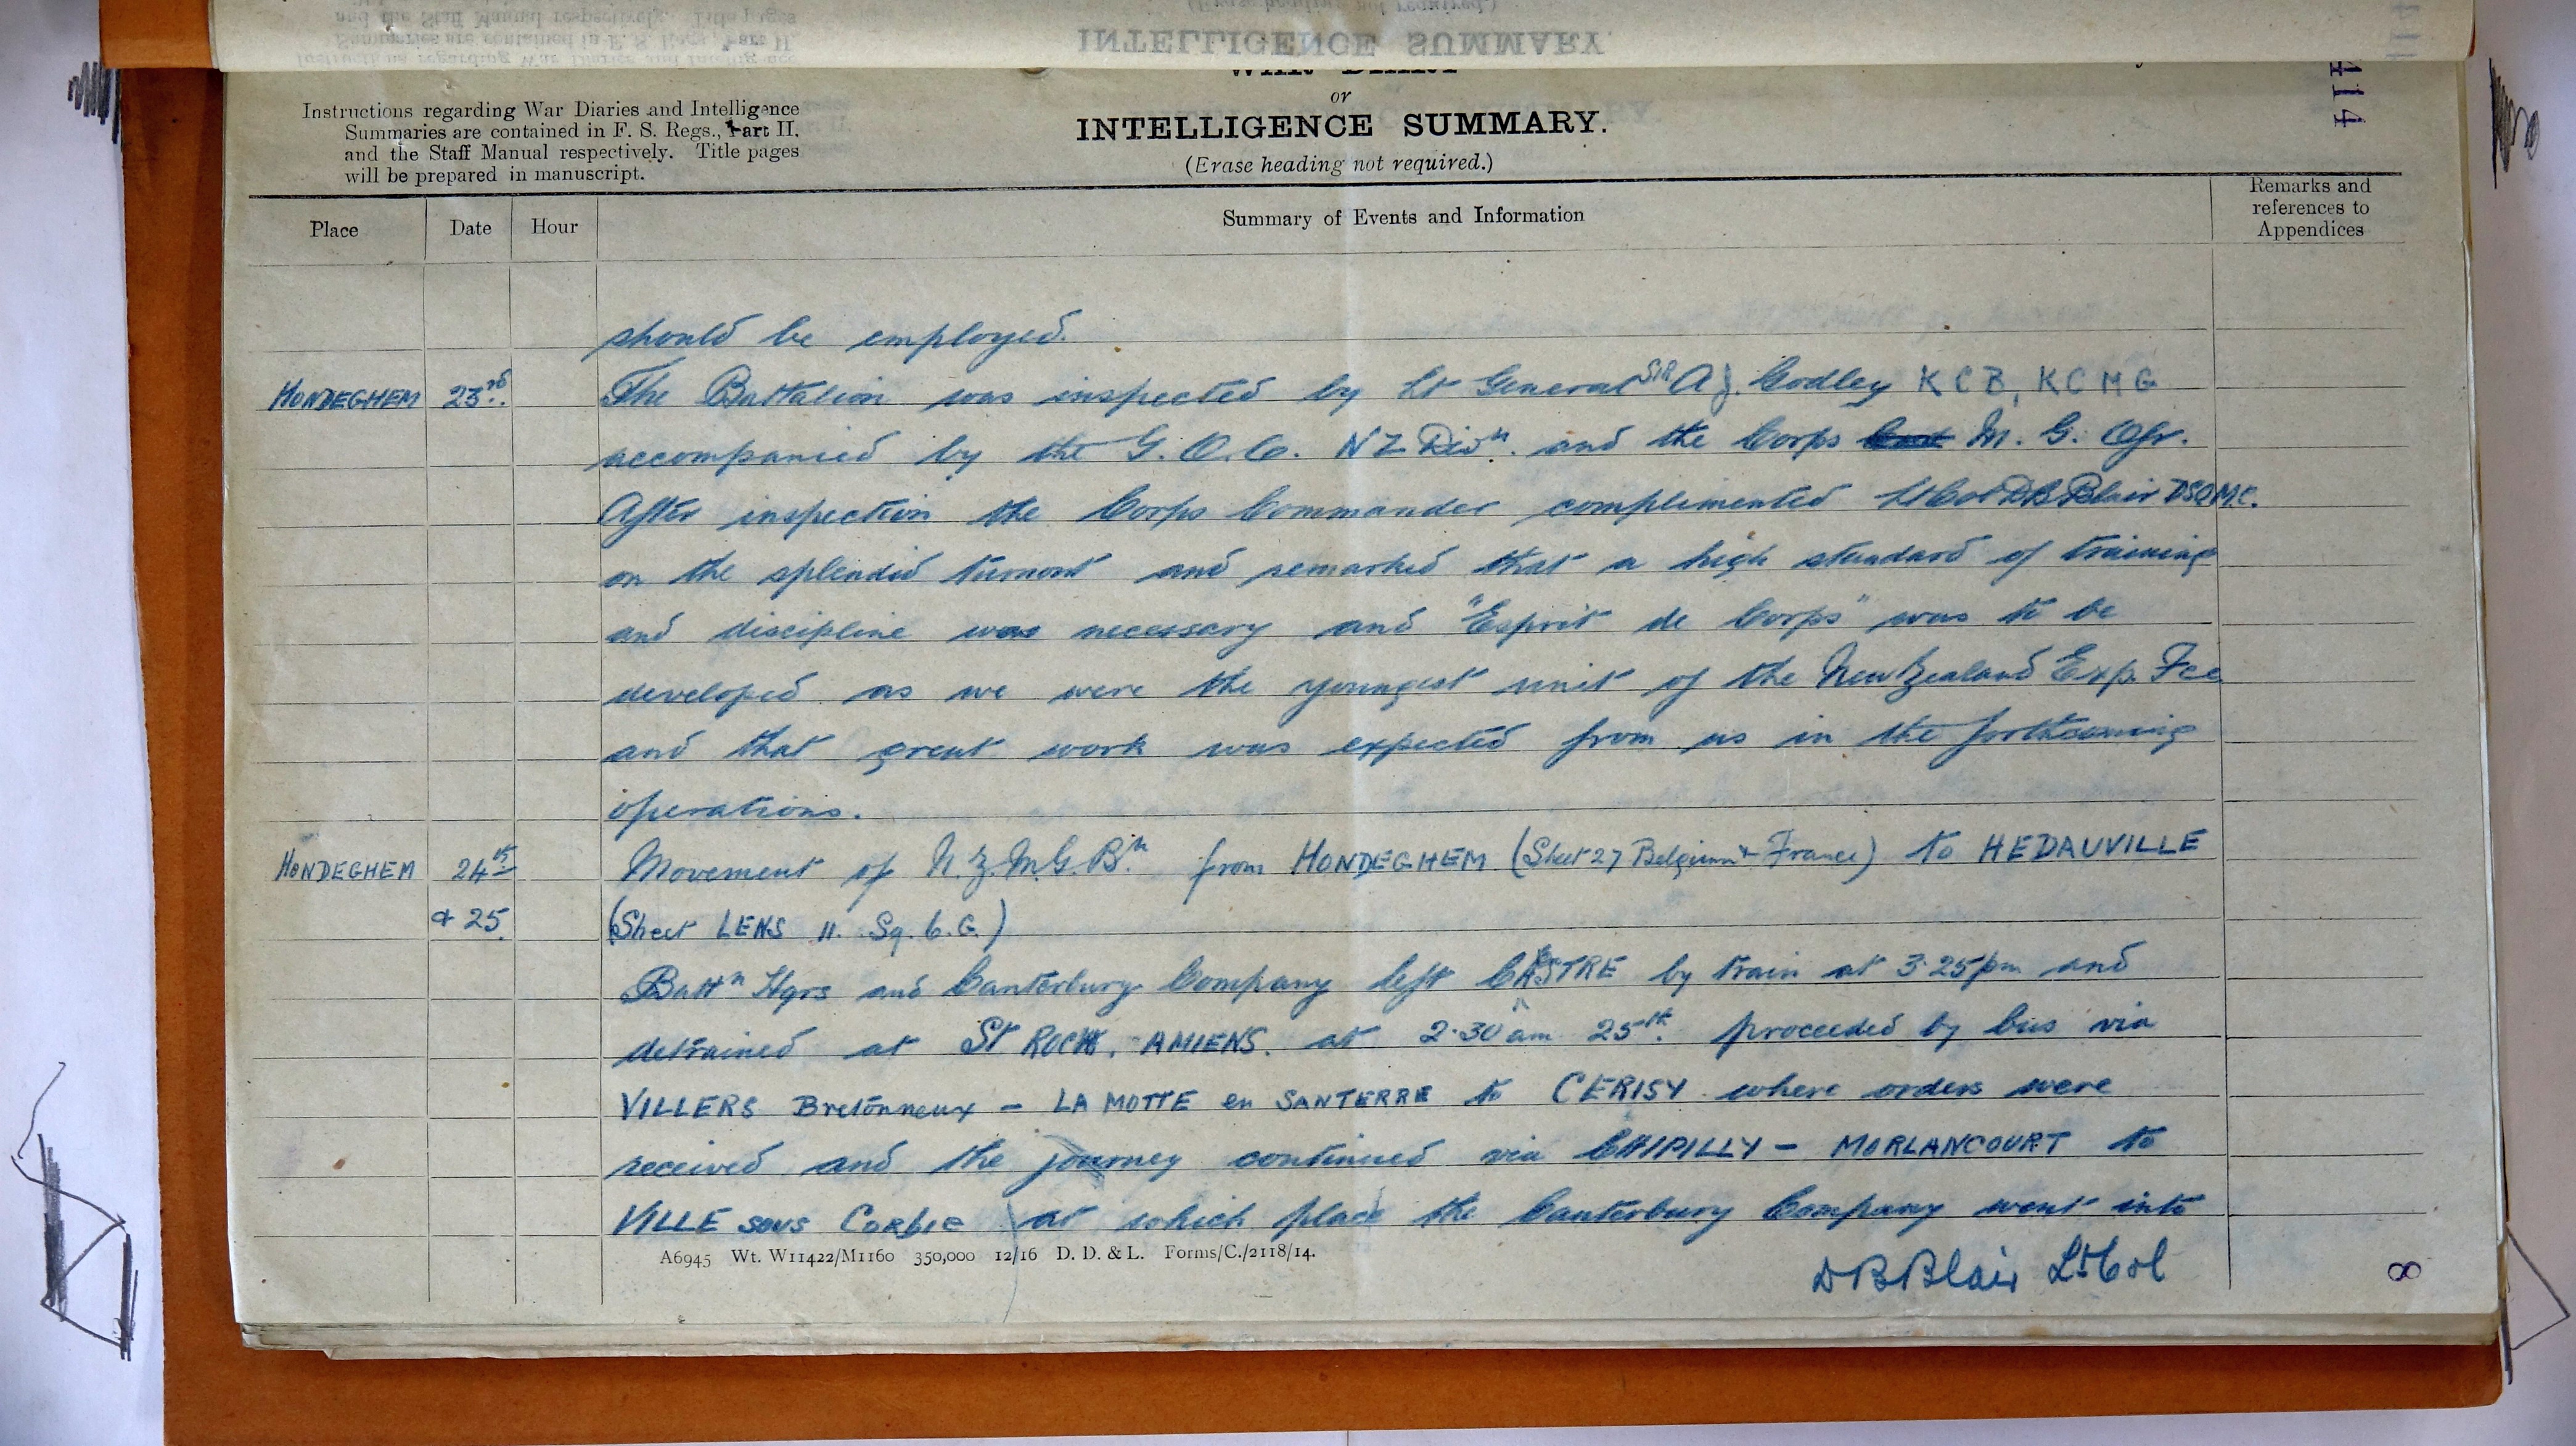 INTELLIGENCE SUMMARY.
WAR DIARY
or
INTELLIGENCE SUMMARY.
(Erase heading not required.)
Instructions regarding War Diaries and Intelligence
Summaries are contained in F. S. Regs., Part II.
and the Staff Manual respectively. Title pages
will be prepared in manuscript.
114
Place Date Hour Summary of Events and Information Remarks and references to Appendices
should be employed.
HONDEGHEM 23rd. The Battalion was inspected by Lt General SIR A J. Godley KCB, KCMG
accompanied by the G.O.C. NZ Divn. and the Corps M. G. Ofr.
After inspection the Corps Commander complimented Lt Col DB Blair DSO M.C.
on the splendid turnout and remarked that a high standard of training
and discipline was necessary and "Esprit de Corps" was to be
developed as we were the youngest unit of the New Zealand Exp. Fce
and that great work was expected from us in the forthcoming
operations.
HONDEGHEM 24th Movement of N.Z.M.G.Bn. from HONDEGHEM (Sheet 27 Belgium & France) to HEDAUVILLE
& 25. (Sheet LENS 11. Sq. 6. G.)
Battn Hqrs and Canterbury Company left CAESTRE by train at 3.25pm and
detrained at St ROCH. AMIENS. at 2.30 am 25th. proceeded by bus via
VILLERS Bretonneux - LA MOTTE en SANTERRE to CERISY where orders were
received and the journey continued via CHIPILLY - MORLANCOURT to
VILLE sous CORBIE at which place the Canterbury Company went into
A6945 Wt. W11422/M1160 350,000 12/16 D. D. & L. Forms/C./2118/14.
D B Blair Lt Col
8